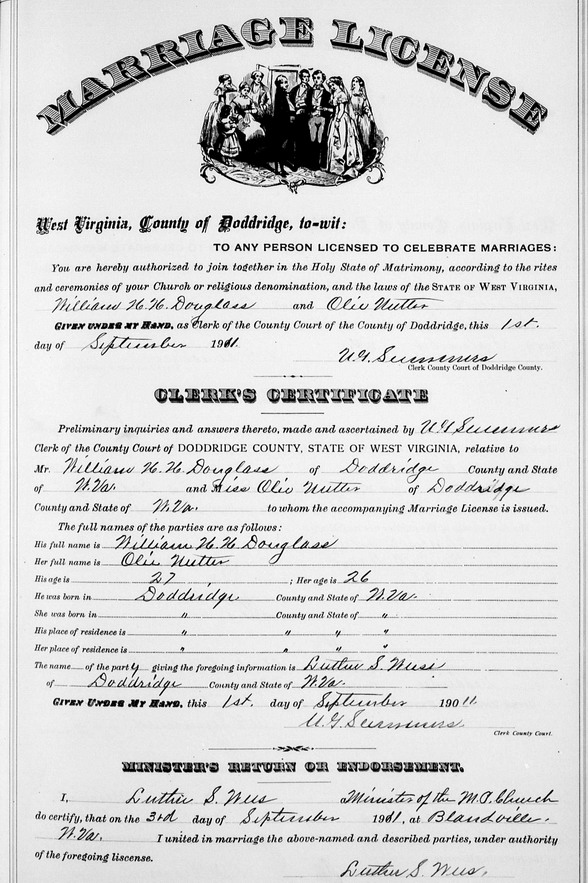 MARRIAGE LICENSE
West Virginia, County of Doddridge, to-wit:
TO ANY PERSON LICENSED TO CELEBRATE MARRIAGES:
You are hereby authorized to join together in the Holy State of Matrimony, according to the rites
and ceremonies of your Church or religious denomination, and the laws of the STATE OF WEST VIRGINIA,
William H. H. Douglass and Olie Nutter
GIVEN UNDER MY HAND, as Clerk of the County Court of the County of Doddridge, this 1st.
day of September 1911.
U. G. Summers
Clerk County Court of Doddridge County.
CLERK'S CERTIFICATE
Preliminary inquiries and answers thereto, made and ascertained by U. G Summers
Clerk of the County Court of DODDRIDGE COUNTY, STATE OF WEST VIRGINIA, relative to
Mr. William H. H. Douglass of Doddridge County and State
of W.Va. and Miss Olie Nutter of Doddridge
County and State of W.Va. to whom the accompanying Marriage License is issued.
The full names of the parties are as follows:
His full name is William H. H Douglass
Her full name is Olie Nutter
His age is 27 ; Her age is 26
He was born in Doddridge County and State of W.Va.
She was born in " County and State of "
His place of residence is " " " "
Her place of residence is " " " "
The name of the party giving the foregoing information is Luther S. Wess
of Doddridge County and State of W.Va.
GIVEN UNDER MY HAND, this 1st. day of September 1911
U. G. Summers
Clerk County Court.
MINISTER'S RETURN OR ENDORSEMENT.
I, Luther S. Wess Minister of the M. P. Church
do certify, that on the 3rd day of September 1911, at Blandville,
W.Va. I united in marriage the above-named and described parties, under authority
of the foregoing liscense.
Luther S. Wess.